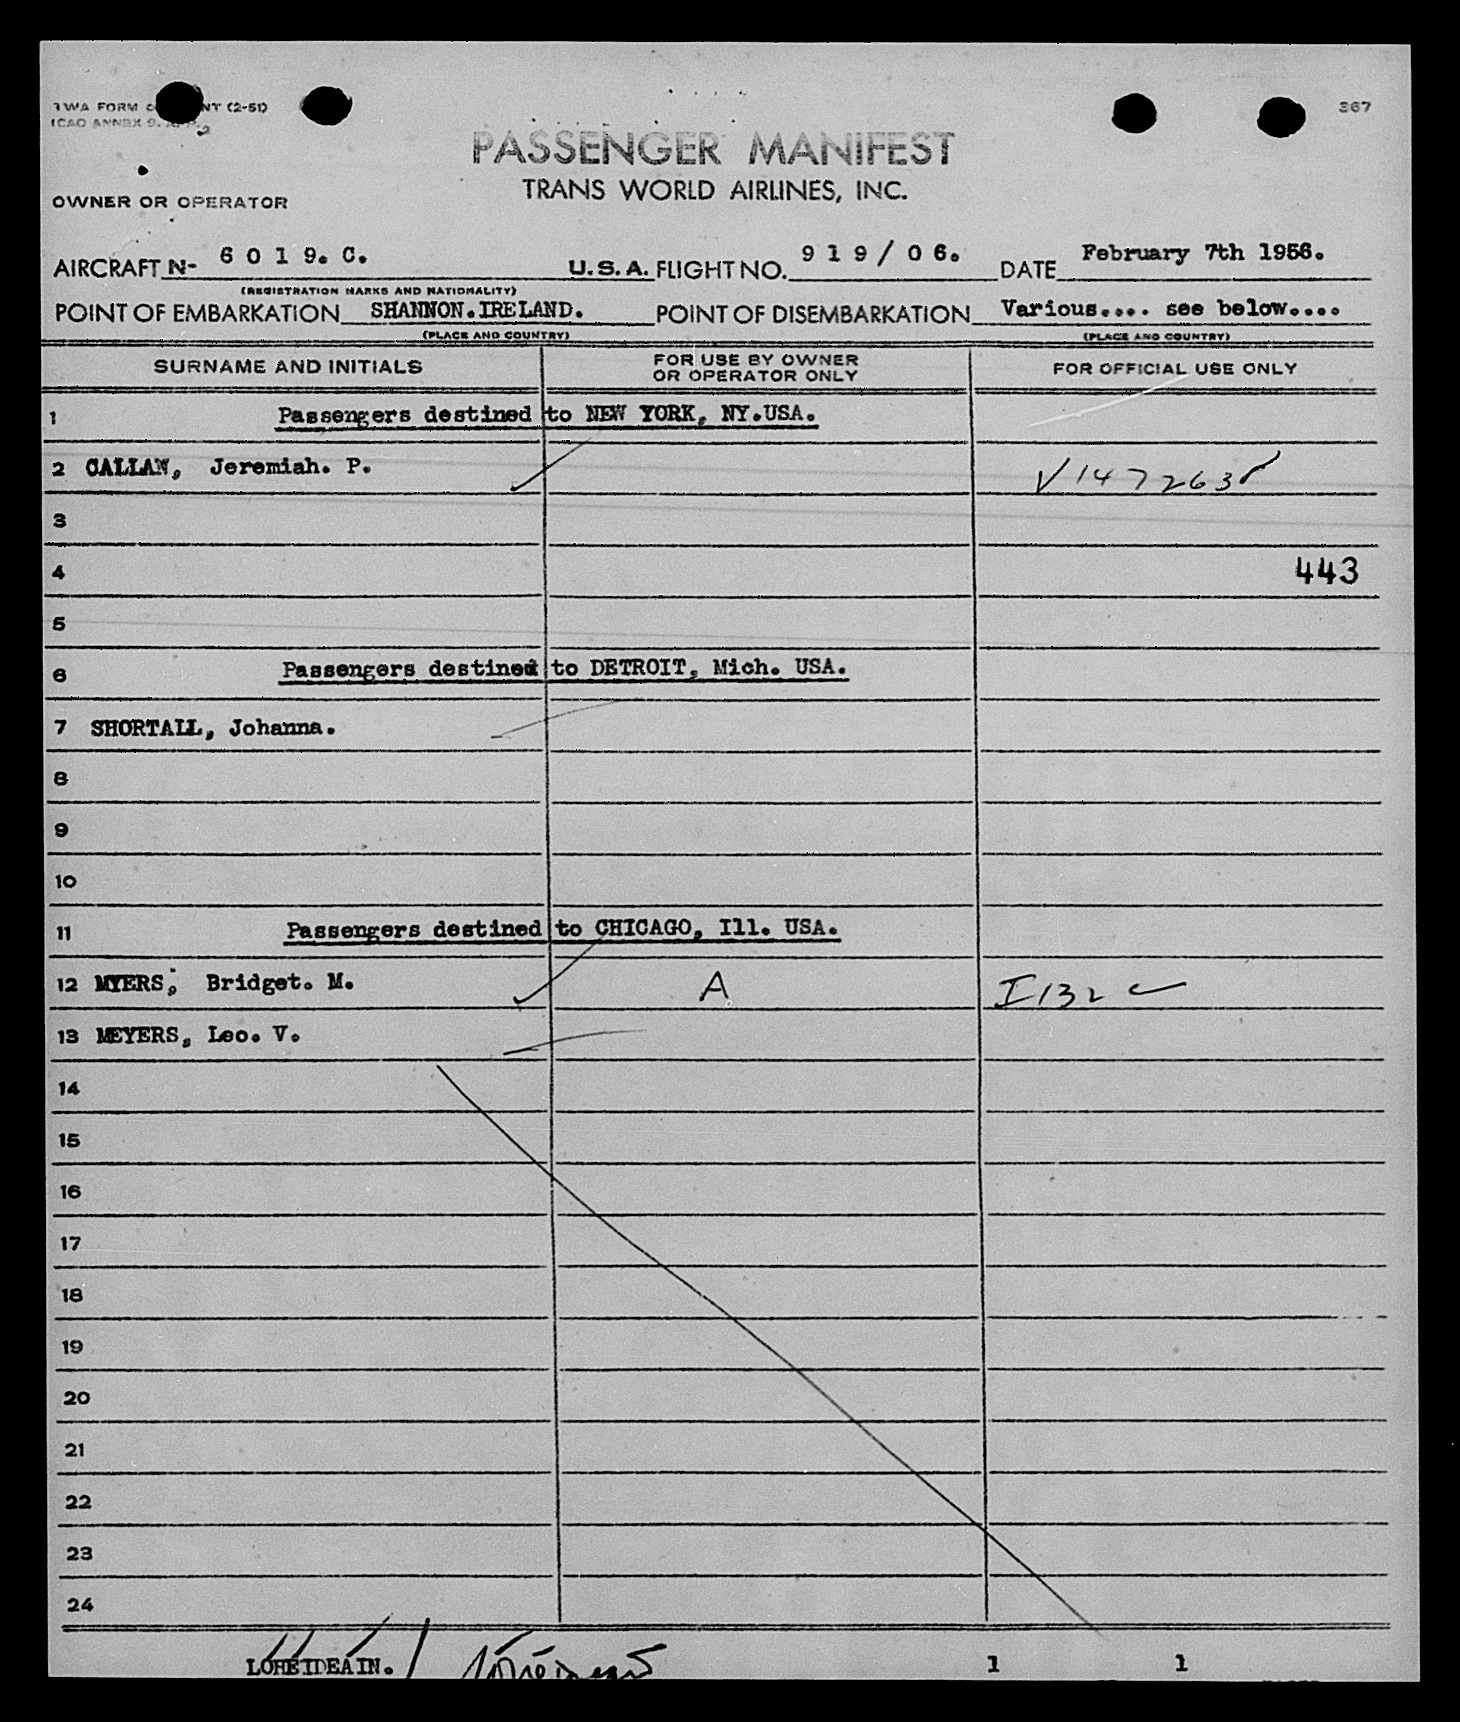 TWA FORM NT (2-51) 367
ICAO ANNEX 9.
PASSENGER MANIFEST
TRANS WORLD AIRLINES, INC.
OWNER OR OPERATOR
AIRCRAFT N- 6 0 1 9. C. U.S.A. FLIGHT NO. 9 1 9 / 0 6. DATE February 7th 1956.
(REGISTRATION MARKS AND NATIONALITY)
POINT OF EMBARKATION SHANNON.IRELAND. POINT OF DISEMBARKATION Various.... see below....
(PLACE AND COUNTRY) (PLACE AND COUNTRY)
SURNAME AND INITIALS FOR USE BY OWNER OR OPERATOR ONLY FOR OFFICIAL USE ONLY
1 Passengers destined to NEW YORK, NY.USA.
2 CALLAN, Jeremiah. P. V147263
3
4 443
5
6 Passengers destined to DETROIT, Mich. USA.
7 SHORTALL, Johanna.
8
9
10
11 Passengers destined to CHICAGO, Ill. USA.
12 MYERS, Bridget. M. A I132
13 MEYERS, Leo. V.
14
15
16
17
18
19
20
21
22
23
24
LOHEIDEAIN. 1 1